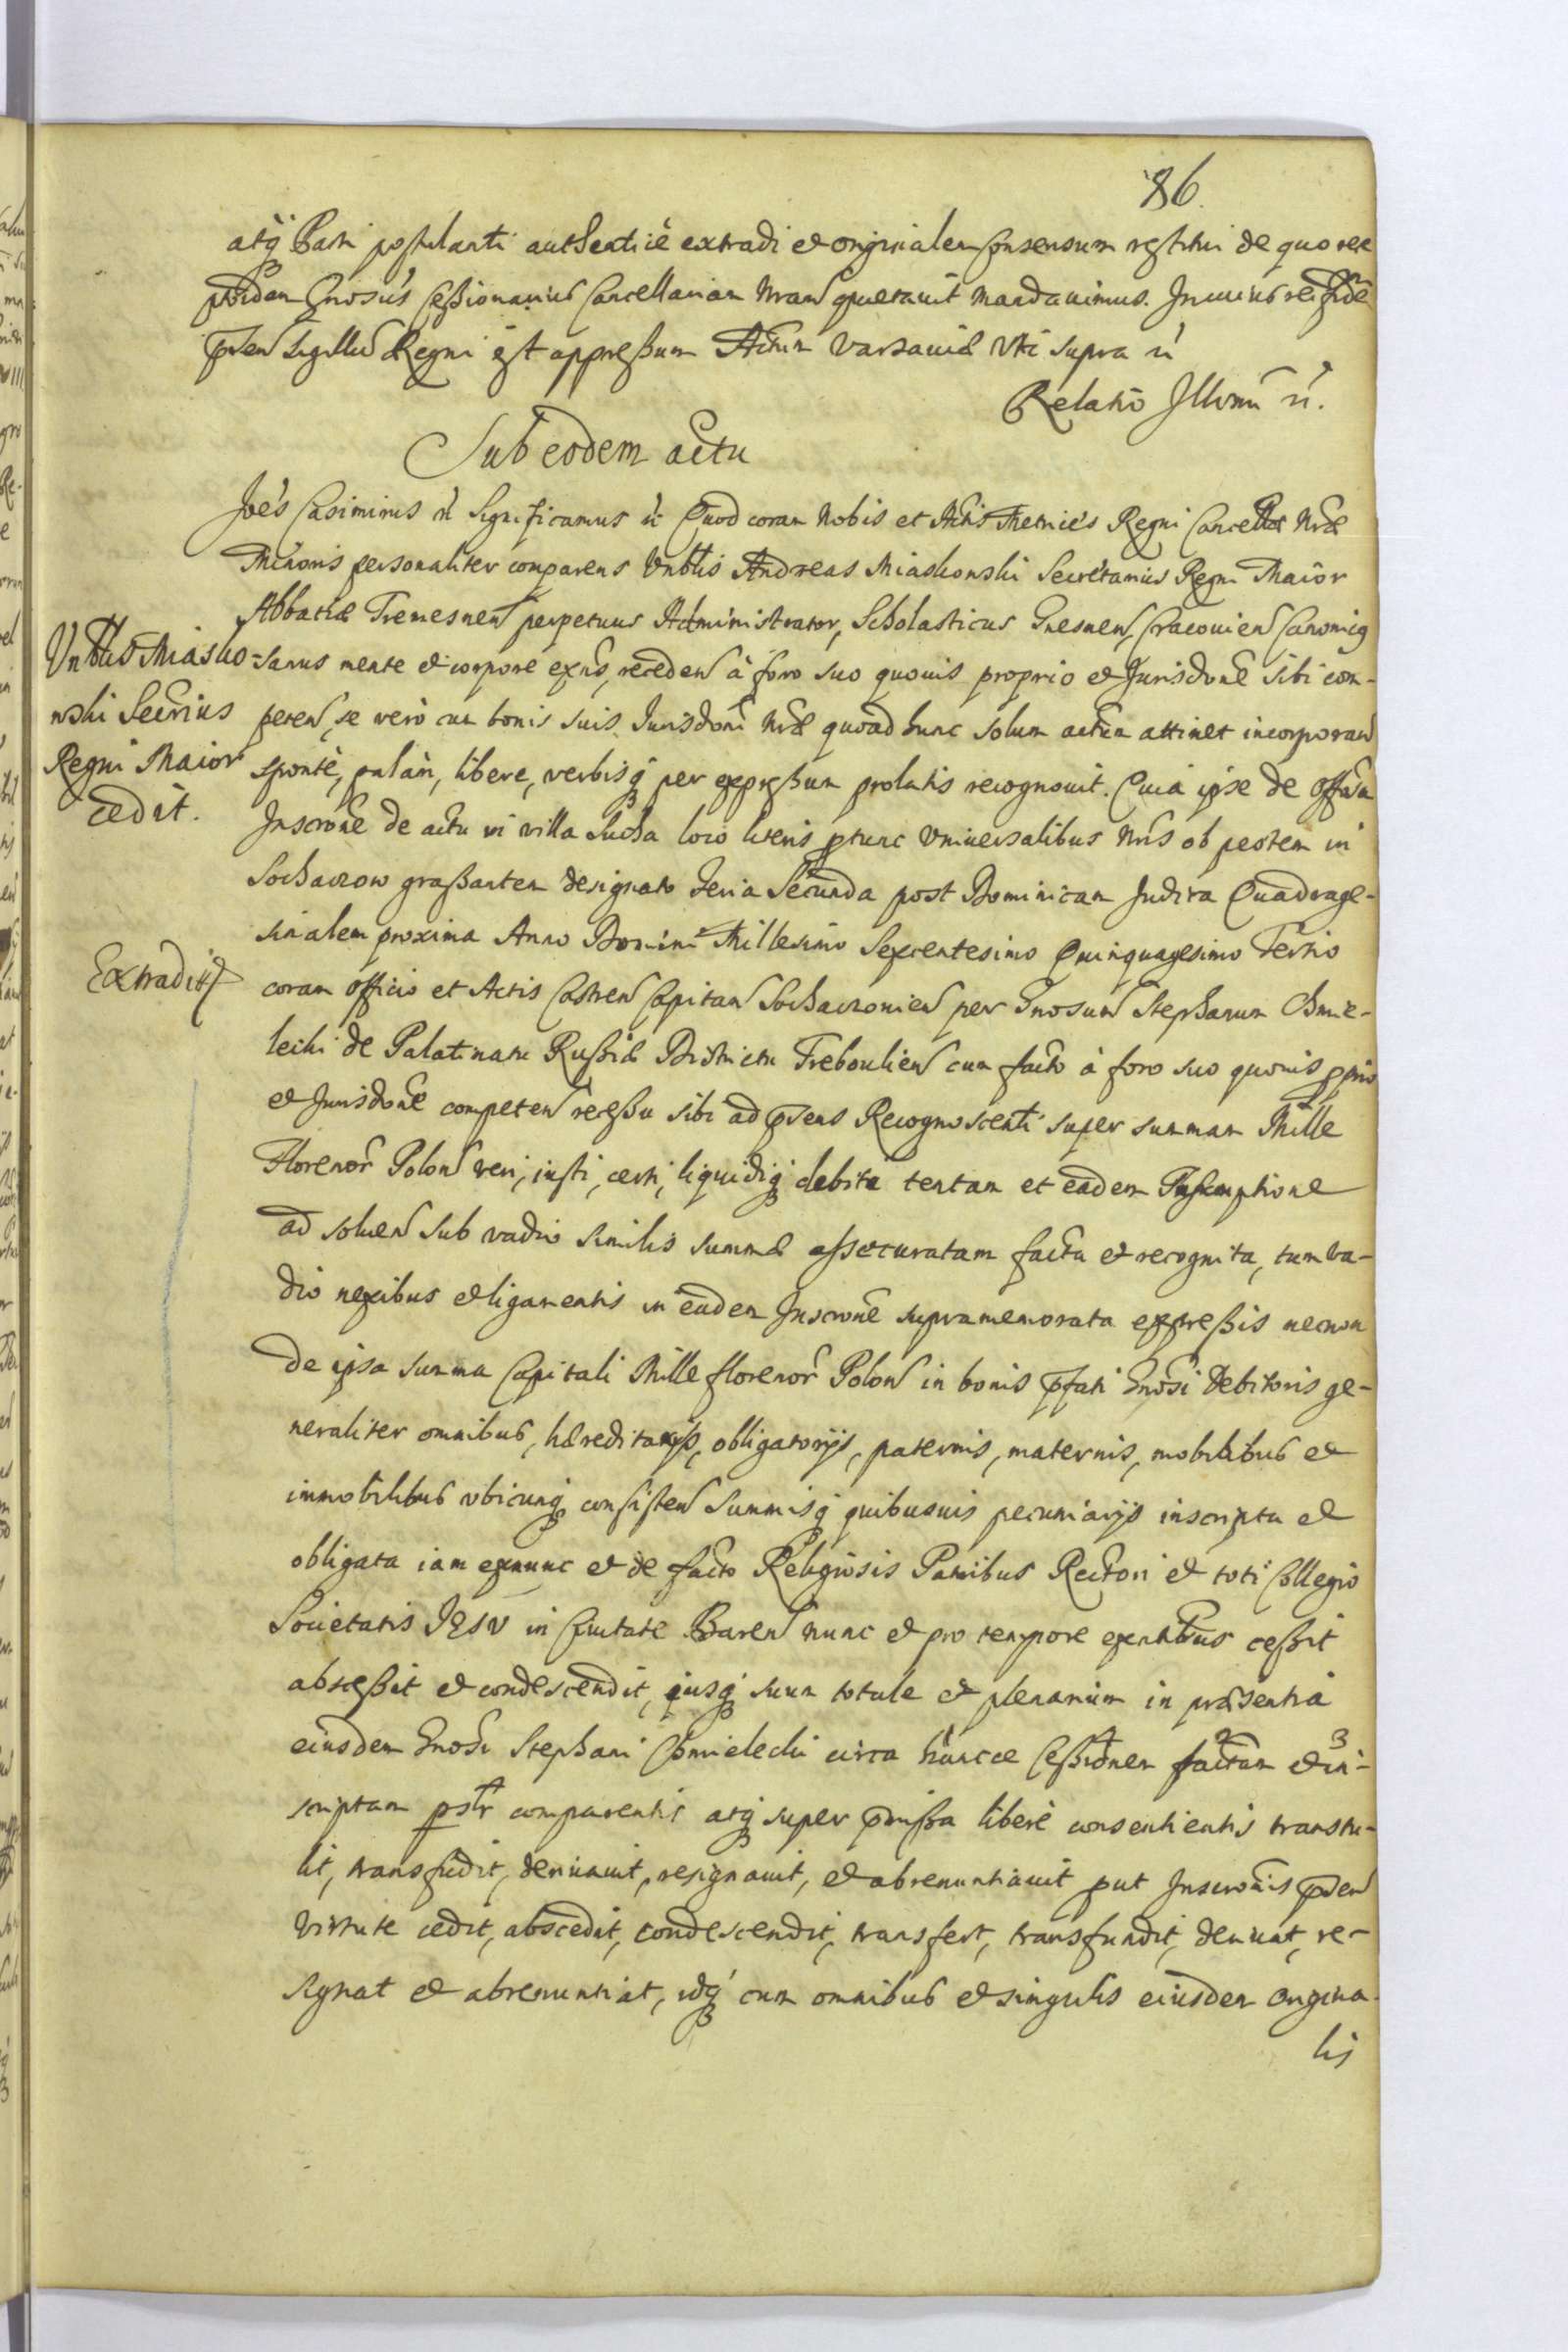 86.
atq̃ Parti postulanti authenticè extradi et originalem Consensum restitui de quo rec
Gnosus Cessionarius Cancellariam Nram quietavit mandavimus. In cuius rei fidẽ
p̃sen sigillũ Regni est appressum Actum Varsaviæ Uti supra ñ
Relatio Illsmi ñ.
Sub eodem actu
Joẽs Casimirus ñ Significamus ñ Quod coram Nobis et Actis Metrices Regni Cancellæ Nræ
Minoris personaliter comparens Vnblis Andreas Miaskonski Secretarius Regni Maior
Abbatiæ Tremesnen perpetuus Administrator, Scholasticus Gnesnen, Cracovien Canonicq
Vnblis Miasko-
nski Secrius
Regni Maior
cedit.
sanus mente et corpore exñs, receden à foro suo quovis proprio et Jurisdone sibi com-
peten, se verò cum bonis suis Jurisdoni Nræ quoad hunc solum actum attinet incorporan
spontè, palàm, libere, verbisq̃ per expressum prolatis recognovit. Quia ipse de
Inscrone de actu in villa Sucha loco literis ptunc Vniversalibus Nris ob pestem in
Sochaczow grassantem designato Feria Secunda post Dominicam Judica Quadrage-
simalem proxima Anno Domini Millesimo Sexcentesimo Quinquagesimo Tertio
Extraditq
coram officio et Actis Castren Capitan Sochaczovien per Gnosum Stephanum Chmie-
lecki de Palatinatu Russiæ Districtu Tremboulien cum facto à foro suo quovis pprio
et Jurisdone competen recessu sibi ad p̃sens Recognoscenti super summam Mille
Florenor Polon veri, iusti, certi, liquidiq̃ debiti tentam et eadem Inscriptione
ad solven sub vadio similis summæ assecuratam facta et recognita, tum va-
dio nexibus et ligamentis in eadem Inscrone supramemorata expressis necnon
de ipsa summa Capitali Mille florenor Polon in bonis p̃fati Gnosi Debitoris ge-
neraliter omnibus, hæreditarijs, obligatorijs, paternis, maternis, mobilibus et
immobilibus vbicunq̃ consisten summisq̃ quibusvis pecuniarijs inscripta et
obligata iam exnunc et de facto Religiosis Patribus Rectori et toti Collegio
Societatis JESV in Civitate Baren nunc et pro tempore exentibus cessit
abscessit et condescendit, jusq̃ suum totale et plenarium in præsentia
eiusdem Gnosi Stephani Chmielecki circa hancce Cessionem factam et in-
scriptam pstr comparentis atq̃ super p̃missa liberè consentientis transtu-
lit, transfudit, derivavit, resignavit, et abrenuntiavit put Inscronis p̃sen
virtute cedit, abscedit, condescendit, transfert, transfundit, derivat, re-
signat et abrenuntiat, idq̃ cum omnibus et singulis eiusdem origina-
lis